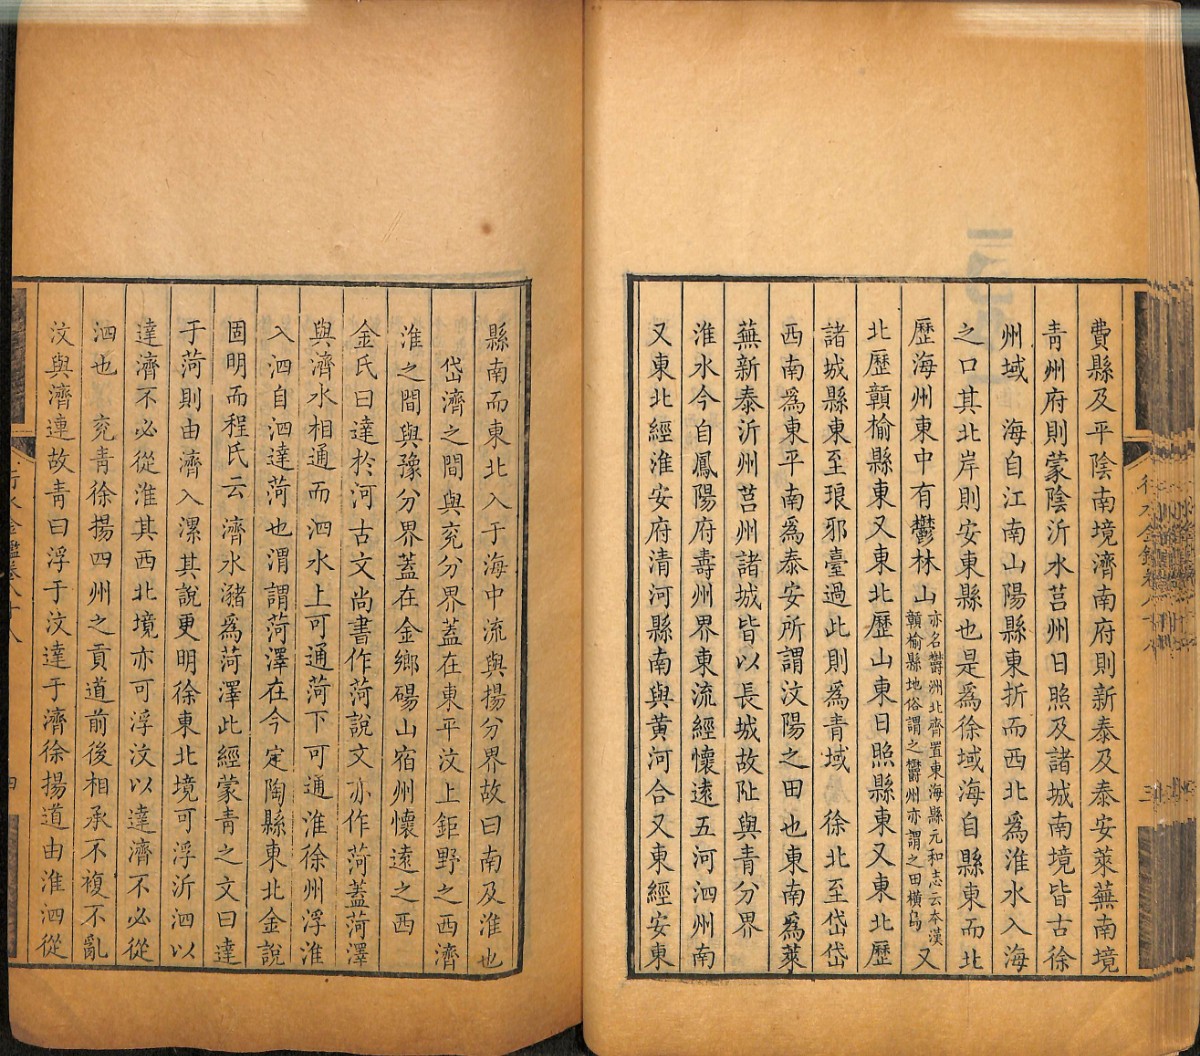 費縣及平陰南境濟南府則新泰及泰安萊蕪南境
青州府則蒙陰沂水莒州日照及諸城南境皆古徐
州域　海自江南山陽縣東折而西北為淮水入海
之口其北岸則安東縣也是為徐域海自縣東而北
歷海州東中有鬱林山亦名鬱洲北齊置東海縣元和志云本漢贛榆縣地俗謂之鬱州亦謂之田橫島又
北歷贛榆縣東又東北歷山東日照縣東又東北歷
諸城縣東至琅邪臺過此則為青域　徐北至岱岱
西南為東平南為泰安所謂汶陽之田也東南為萊
蕪新泰沂州莒州諸城皆以長城故阯與青分界
淮水今自鳳陽府壽州界東流經懷遠五河泗州南
又東北經淮安府清河縣南與黃河合又東經安東
縣南而東北入于海中流與揚分界故曰南及淮也
岱濟之間與兗分界蓋在東平汶上鉅野之西濟
淮之間與豫分界蓋在金鄉碭山宿州懷遠之西
金氏曰達於河古文尚書作菏說文亦作菏蓋菏澤
與濟水相通而泗水上可通菏下可通淮徐州浮淮
入泗自泗達菏也渭謂菏澤在今定陶縣東北金說
固明而程氏云濟水瀦為菏澤此經蒙青之文曰達
于菏則由濟入漯其說更明徐東北境可浮沂泗以
達濟不必從淮其西北境亦可浮汶以達濟不必從
泗也　兗青徐揚四州之貢道前後相承不複不亂
汶與濟連故青曰浮于汶達于濟徐揚道由淮泗從